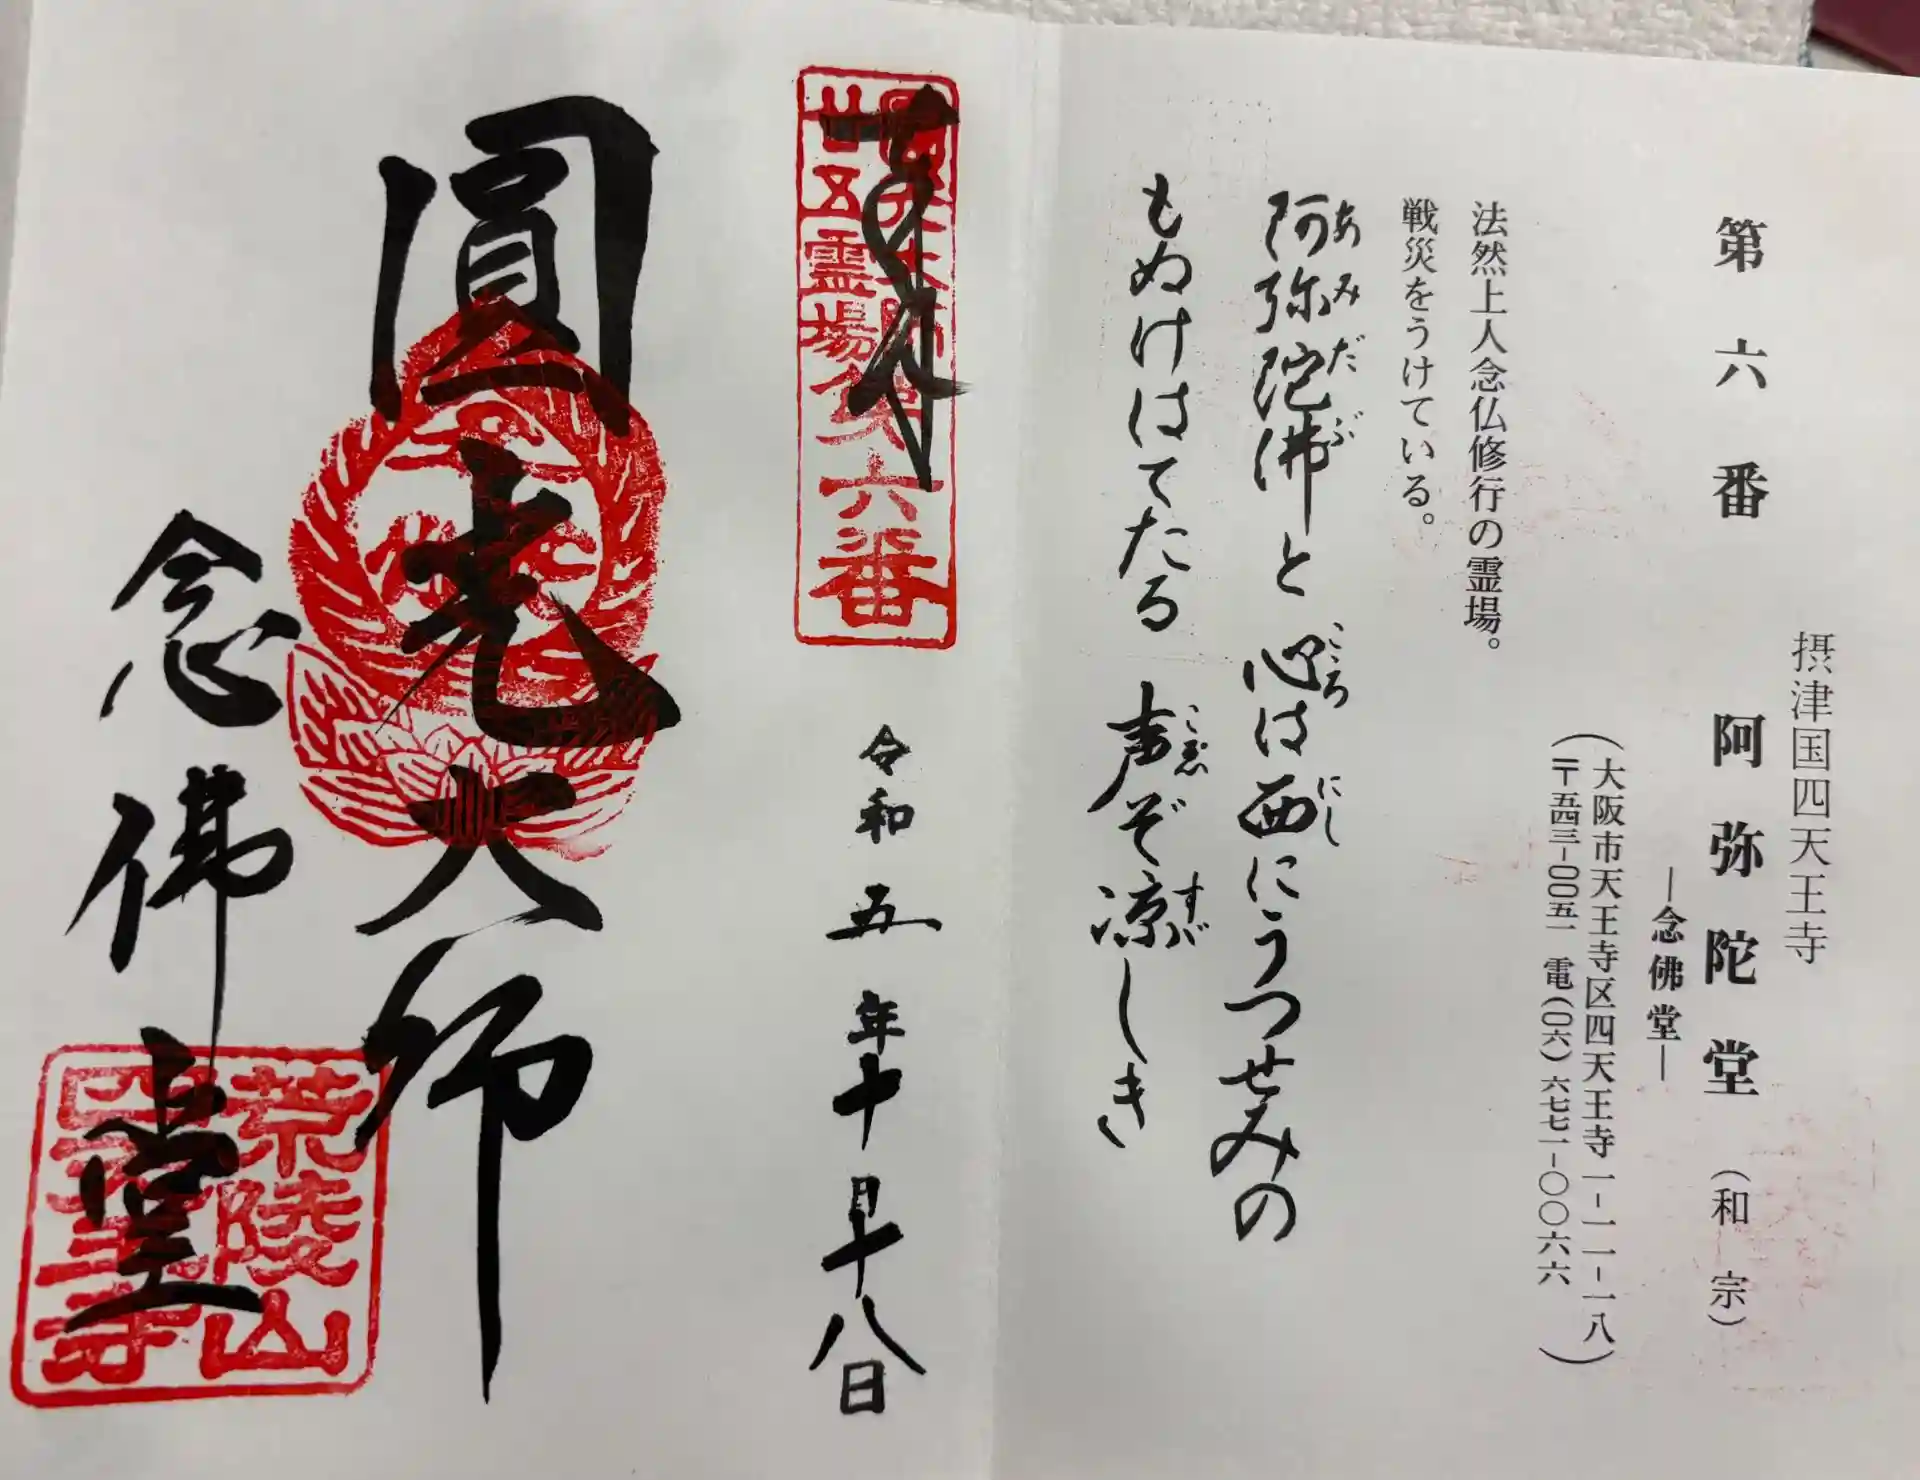 摂津国四天王寺
第六番 阿弥陀堂(和宗)
―念佛堂―
(大阪市天王寺区四天王寺一-一一-一八
〒五四三-〇〇五一 電(〇六)六七七一-〇〇六六)
法然上人念仏修行の霊場。
戦災をうけている。
阿弥陀佛と 心は西にうつせみの
あみだぶ こころ にし
もぬけはてたる 声ぞ凉しき
こゑ すゞ
廿五霊場第六番
令和五年十月十八日
圓光大師
念佛堂
荒陵山
四天王寺